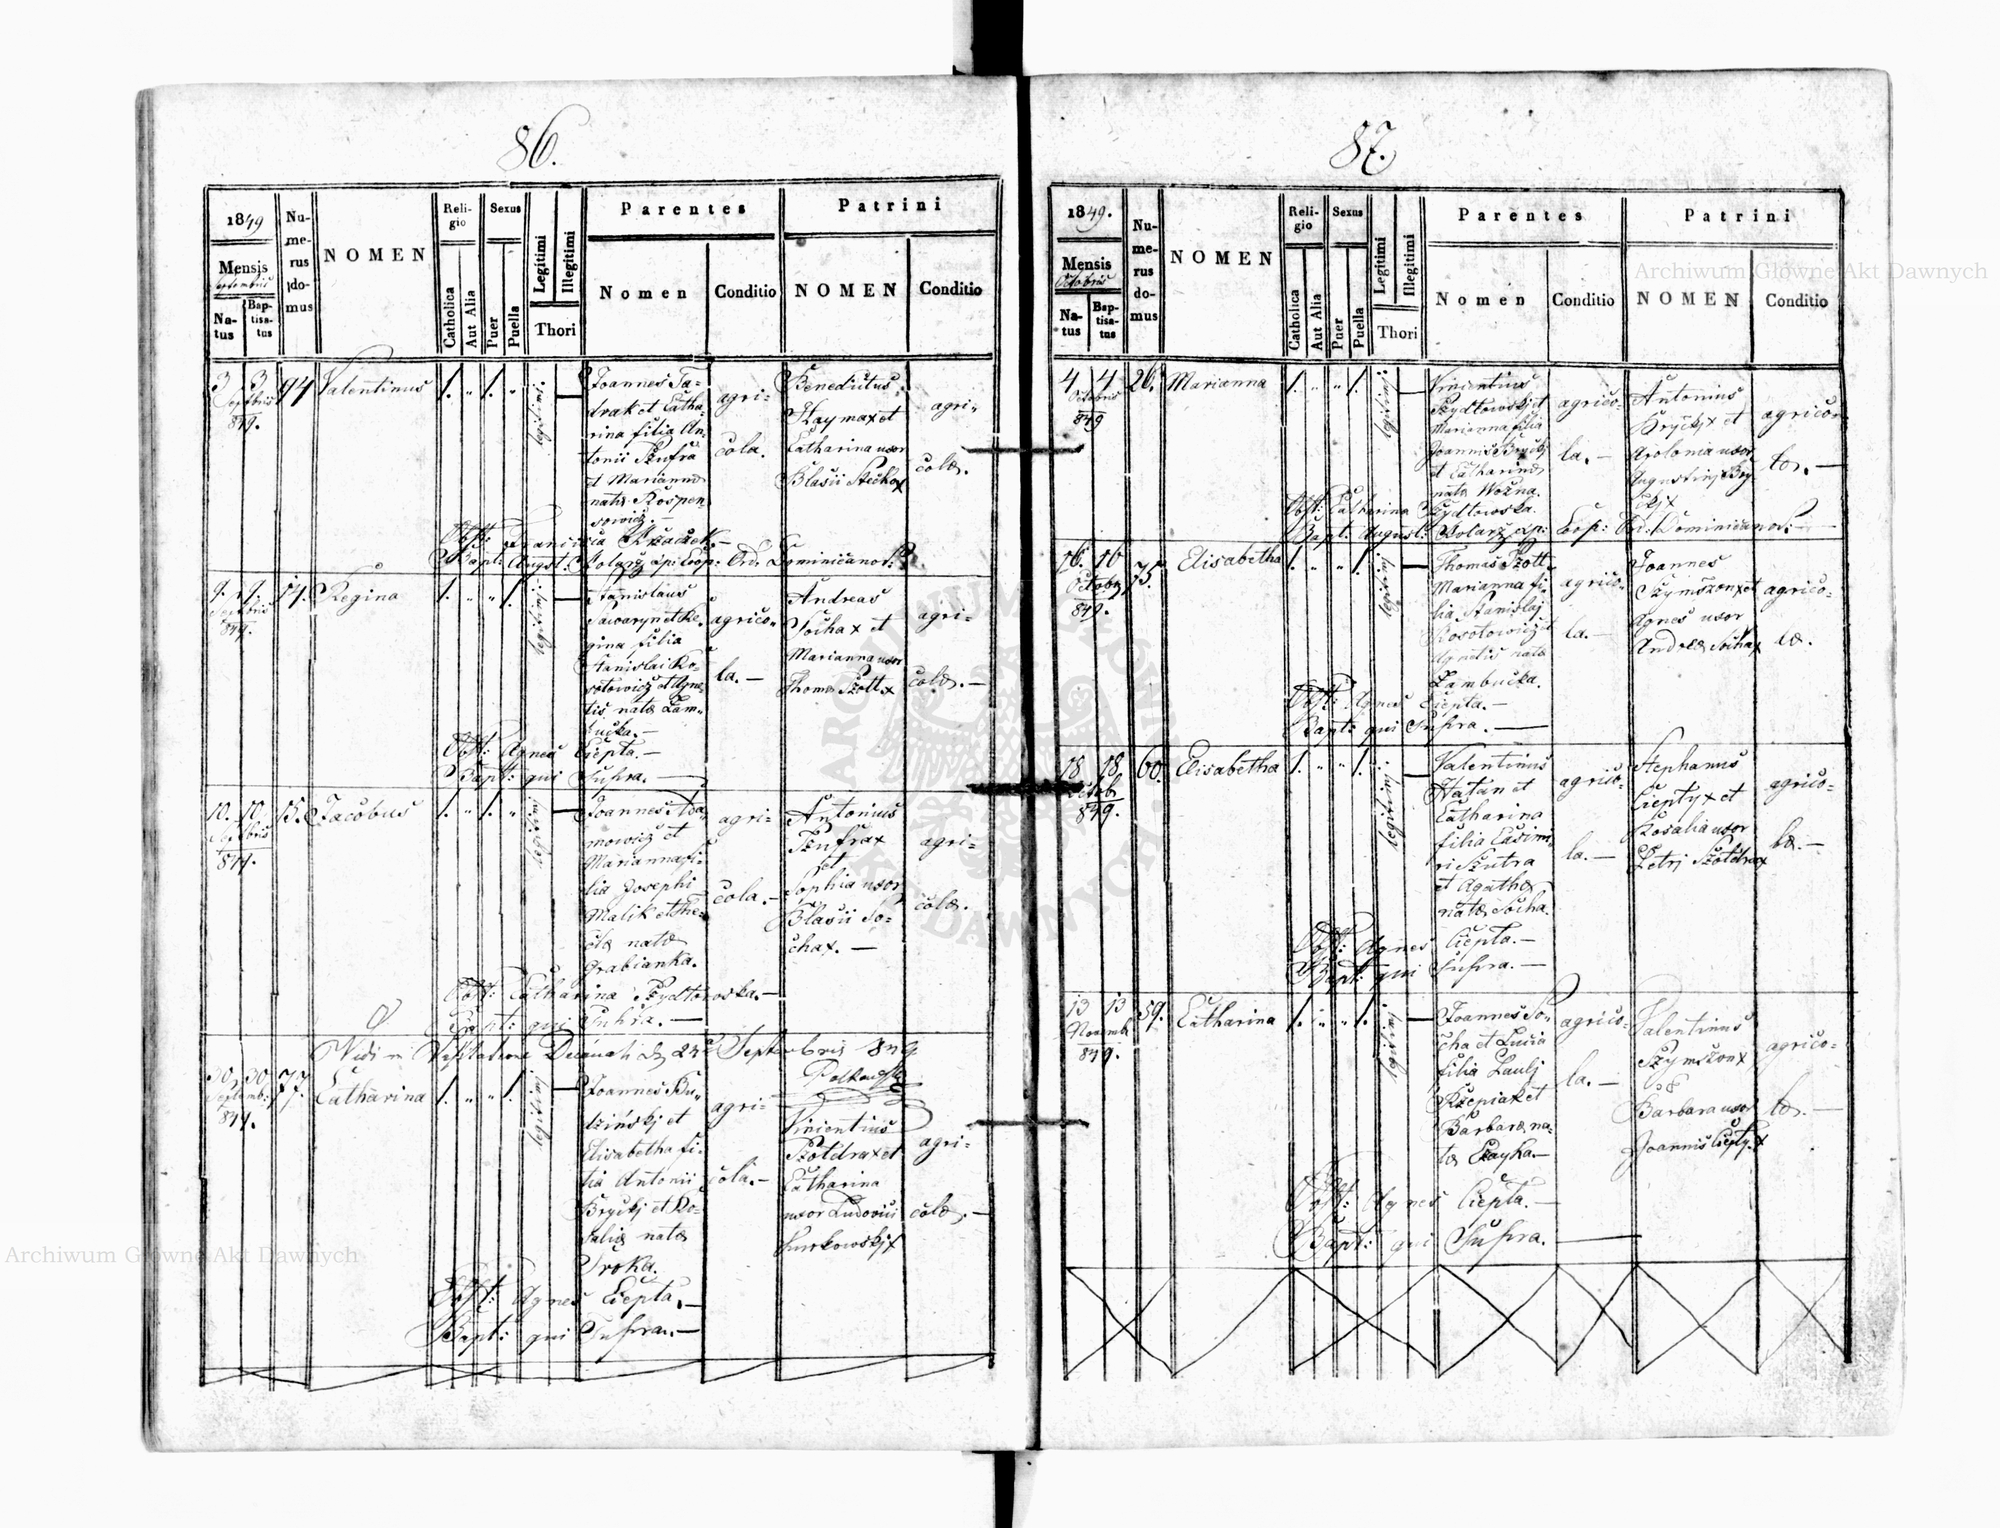 86.
1849
Mensis
Septembris
Na-
tus
Bap-
tisa-
tus
Nu-
me-
rus
do-
mus
NOMEN
Reli-
gio
Catholica
Aut Alia
Sexus
Puer
Puella
Legitimi
Illegitimi
Thori
Parentes
Nomen
Conditio
Patrini
NOMEN
Conditio
3 3 94 Valentinus 1. " 1. "
Septbris
849.
legitimi
Joannes Ta-
et Catha-
rina filia An-
tonii Szufra
et Marianna
natae Rospon-
sowicz.—
agri-
cola.
Benedictus
Haymax et
Catharina uxor
Blasii Stechox
agri-
colae.
Obst: Francisca
Bapt: August: Kolarz Loci Coop: Ord. Dominicanor:
9. 9. 14. Regina 1. " " 1.
Septbris
849.
legitimi
Stanislaus
Sawaryn et Re-
gina filia
Stanislai Ko-
sotowicz et Agne-
tis natae Zam-
bucka.—
agrico-
la.—
Andreas
Sochax et
Marianna uxor
Thomae Szott x
agri-
colae.—
Obst: Agnes Ciepta.—
Bapt: qui Supra.—
10. 10. 15. Jacobus 1. " 1. "
Septbris
849.
legitimi
Joannes Ada-
mowicz et
Marianna fi-
lia Josephi
Malik et The-
clae natae
Grabianka.
agri-
cola.—
Antonius
Szufrax
et
Sophia uxor
Blasii So-
chax.—
agri-
colae.
Obst: Catharina Szydtowska.—
Bapt: qui Supra.—
Vidi in Visitatione Decanali d. 23 Septembris 849
30. 30. 77. Catharina 1. " " 1.
Septemb:
849.
legitimi
Joannes Bu-
dzinskj et
Elisabetha fi-
lia Antonii
Bryckj et Ro-
saliae natae
Sroka.
agri-
cola.—
Vincentius
Szoldrax et
Catharina
uxor Ludovici
Surkowskjx
agri-
colae.—
Obst: Agnes Ciepta.—
Bapt: qui Supra.—
87.
1849.
Mensis
Octobris
Na-
tus
Bap-
tisa-
tus
Nu-
me-
rus
do-
mus
NOMEN
Reli-
gio
Catholica
Aut Alia
Sexus
Puer
Puella
Legitimi
Illegitimi
Thori
Parentes
Nomen
Conditio
Patrini
NOMEN
Conditio
4 4 26. Marianna 1. " " 1.
Octobris
849
legitimi
Vincentius
Szydtowskj et
Marianna filia
Joannis Bryckj
et Catharinae
natae Wozna.
agrico-
la.—
Antonius
Bryckjx et
Apolonia uxor
Augustinj Bry-
ckjx
agrico-
lae.—
Obst: Catharina Szydtowska.
Bapt: August: Kolarz Lp: Coop: Ord: Dominicanor:—
16. 16 75. Elisabetha 1. " " 1.
Octobr
849.
legitimi
Thomas Szott
Marianna fi-
lia Stanislaj
Kosotowicz et
Agnetis natae
Zambucka.
agrico-
la.—
Joannes
Szymszonx et
Agnes uxor
Andreae Sochax
agrico-
lae.
Obst: Agnes Ciepta.—
Bapt: qui Supra.—
18 18 60. Elisabetha 1. " " 1.
Octob
849.
legitimi
Valentinus
Hatan et
Catharina
filia Casimi-
ri Szutra
et Agathae
natae Socha.
agrico-
la.—
Stephanus
Cieptyx et
Rosalia uxor
Petri Szoldrax
agrico-
lae.—
Obst: Agnes Ciepta.—
Bapt: qui Supra.—
13 13 59. Catharina 1. " " 1.
Novemb
849.
legitimi
Joannes So-
cha et Lucia
filia Paulj
Rzepiak et
Barbarae na-
tae Czayka.—
agrico-
la.—
Valentinus
Szymszonx
&
Barbara uxor
Joannis Ciepty.x
agrico-
lae.—
Obst: Agnes Ciepta.—
Bapt: qui Supra.—
Archiwum Główne Akt Dawnych
Archiwum Główne Akt Dawnych
ARCHIWUM GŁÓWNE AKT DAWNYCH